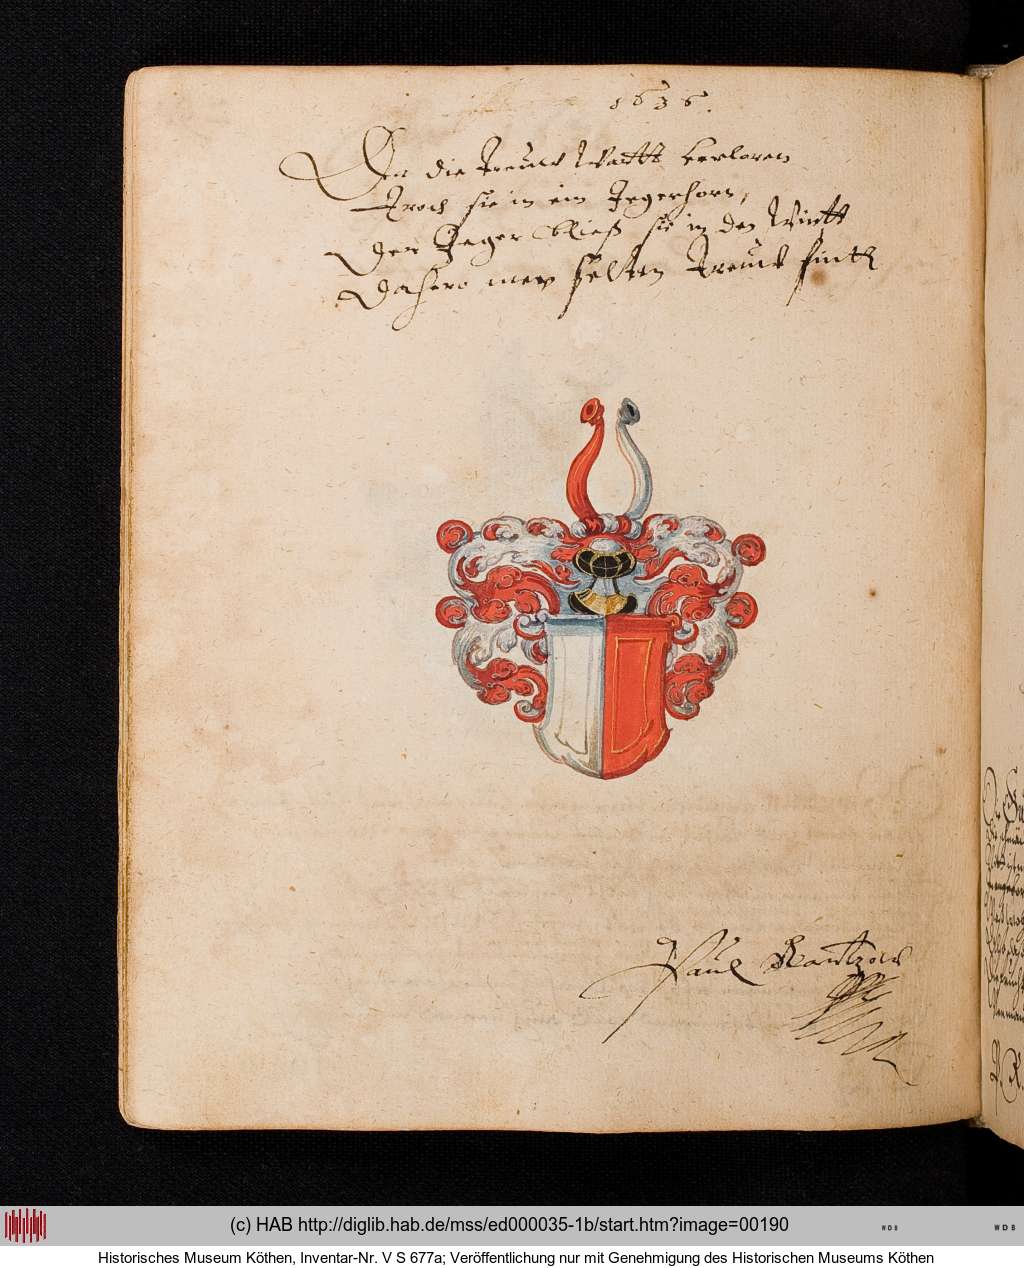 1636.
Da die Treuw Wartt verloren
Kroch sie in ein Jegerhorn,
Der Jeger bließ sie in den Windtt
Dahero men selten Treuw findtt
Paul Rantzow
(c) HAB http://diglib.hab.de/mss/ed000035-1b/start.htm?image=00190
WDB
WDB
Historisches Museum Köthen, Inventar-Nr. V S 677a; Veröffentlichung nur mit Genehmigung des Historischen Museums Köthen